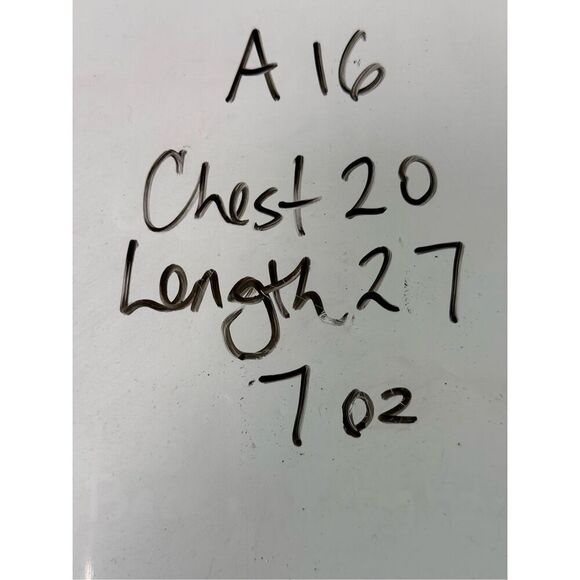 A 16
Chest 20
Length 27
7 oz